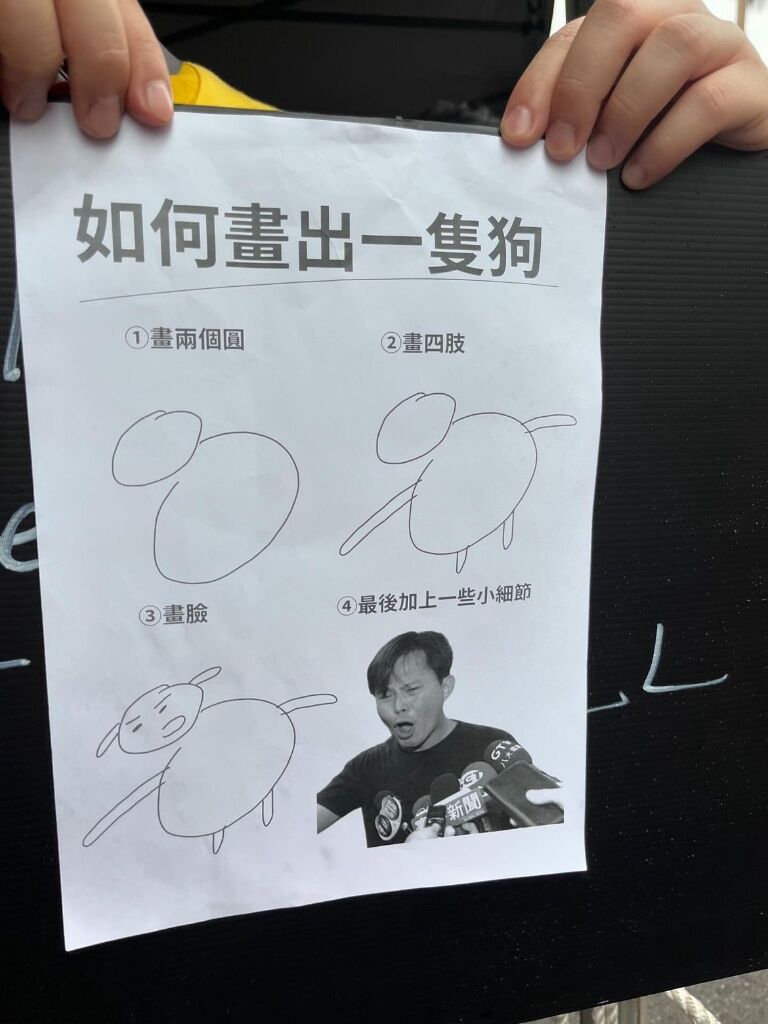 如何畫出一隻狗
①畫兩個圓
②畫四肢
③畫臉
④最後加上一些小細節
新聞